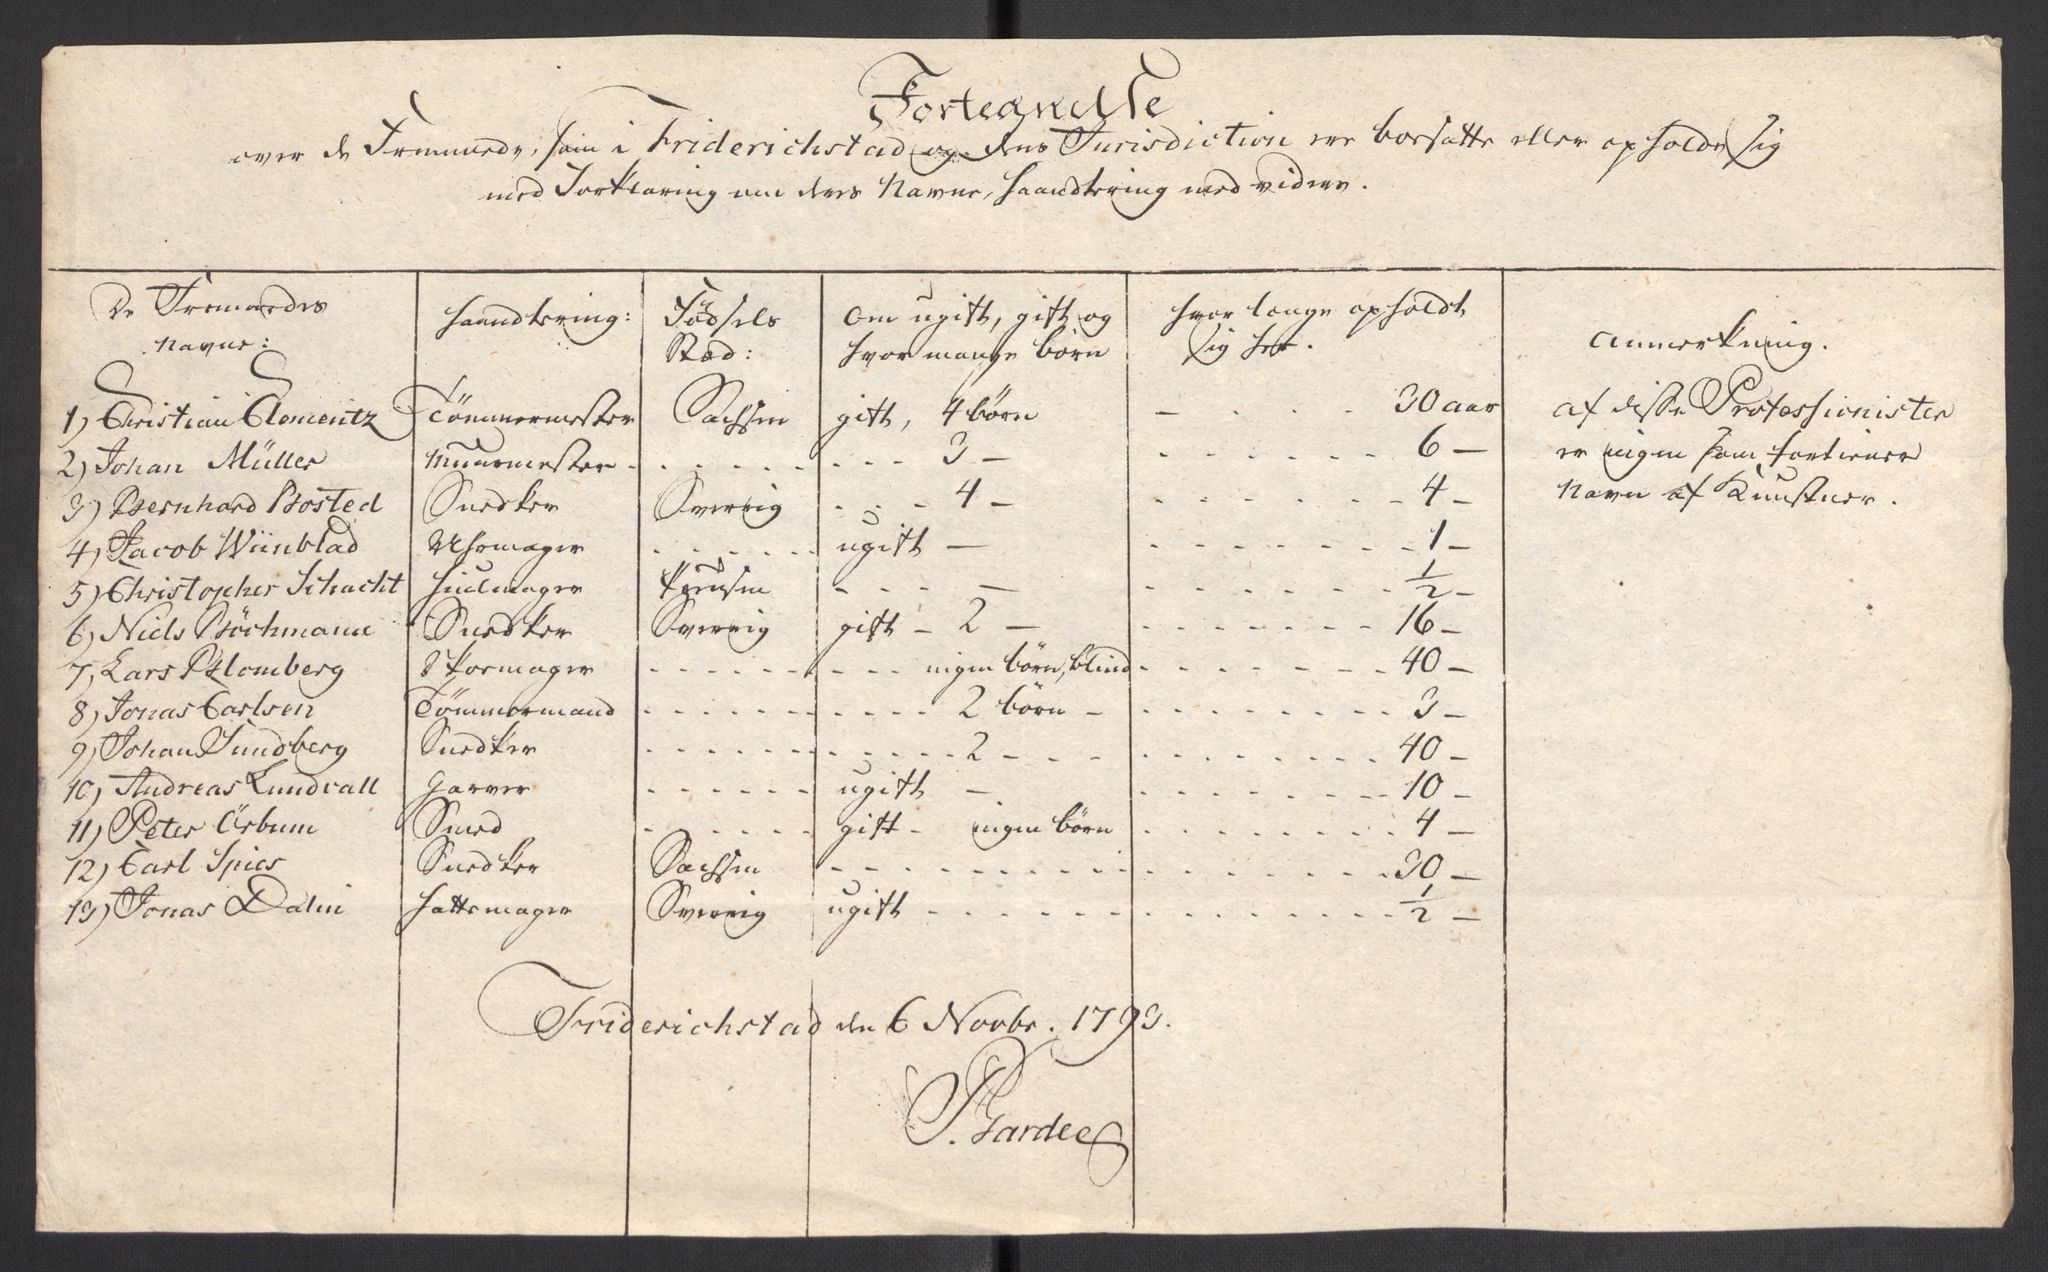 Fortegnelse
over de Fremmede, som i Friderichstad og dens Jurisdiction ere boesatte eller opholde sig
med Forklaring om deres Navne, Haandtering med videre.
De Fremmedes Navne: Haandtering: Fødsels Stæd: Om ugift, gift og hvor mange börn hvor længe opholdt sig her. Anmerkning.
1) Christian Clementz Tömmermester Sachsen gift, 4 börn - 30 aar af disse Professionister
2) Johan Müller Muurmester - 3 - 6 - er ingen som fortiener
3) Bernhard Bosted Snedker Sverrig 4 - 4 - Navn af Kunstner.
4) Jacob Wiinblad Uhrmager ugift - 1 -
5) Christopher Schacht Hiulmager Preusen - 1/2 -
6) Niels Böchmann Snedker Sverrig gift - 2 - 16 -
7) Lars Blomberg Skoemager ingen börn, blind 40 -
8) Jonas Carlsen Tömmermand 2 börn - 3 -
9) Johan Sundberg Snedker 2 - 40 -
10) Andreas Lundvall Garver ugift - 10 -
11) Peter Örbum Smed gift - ingen börn 4 -
12) Carl Spies Snedker Sachsen 30 -
13) Jonas Dalin Hattemager Sverrig ugift - 1/2 -
Friderichstad den 6 Novbr. 1793.